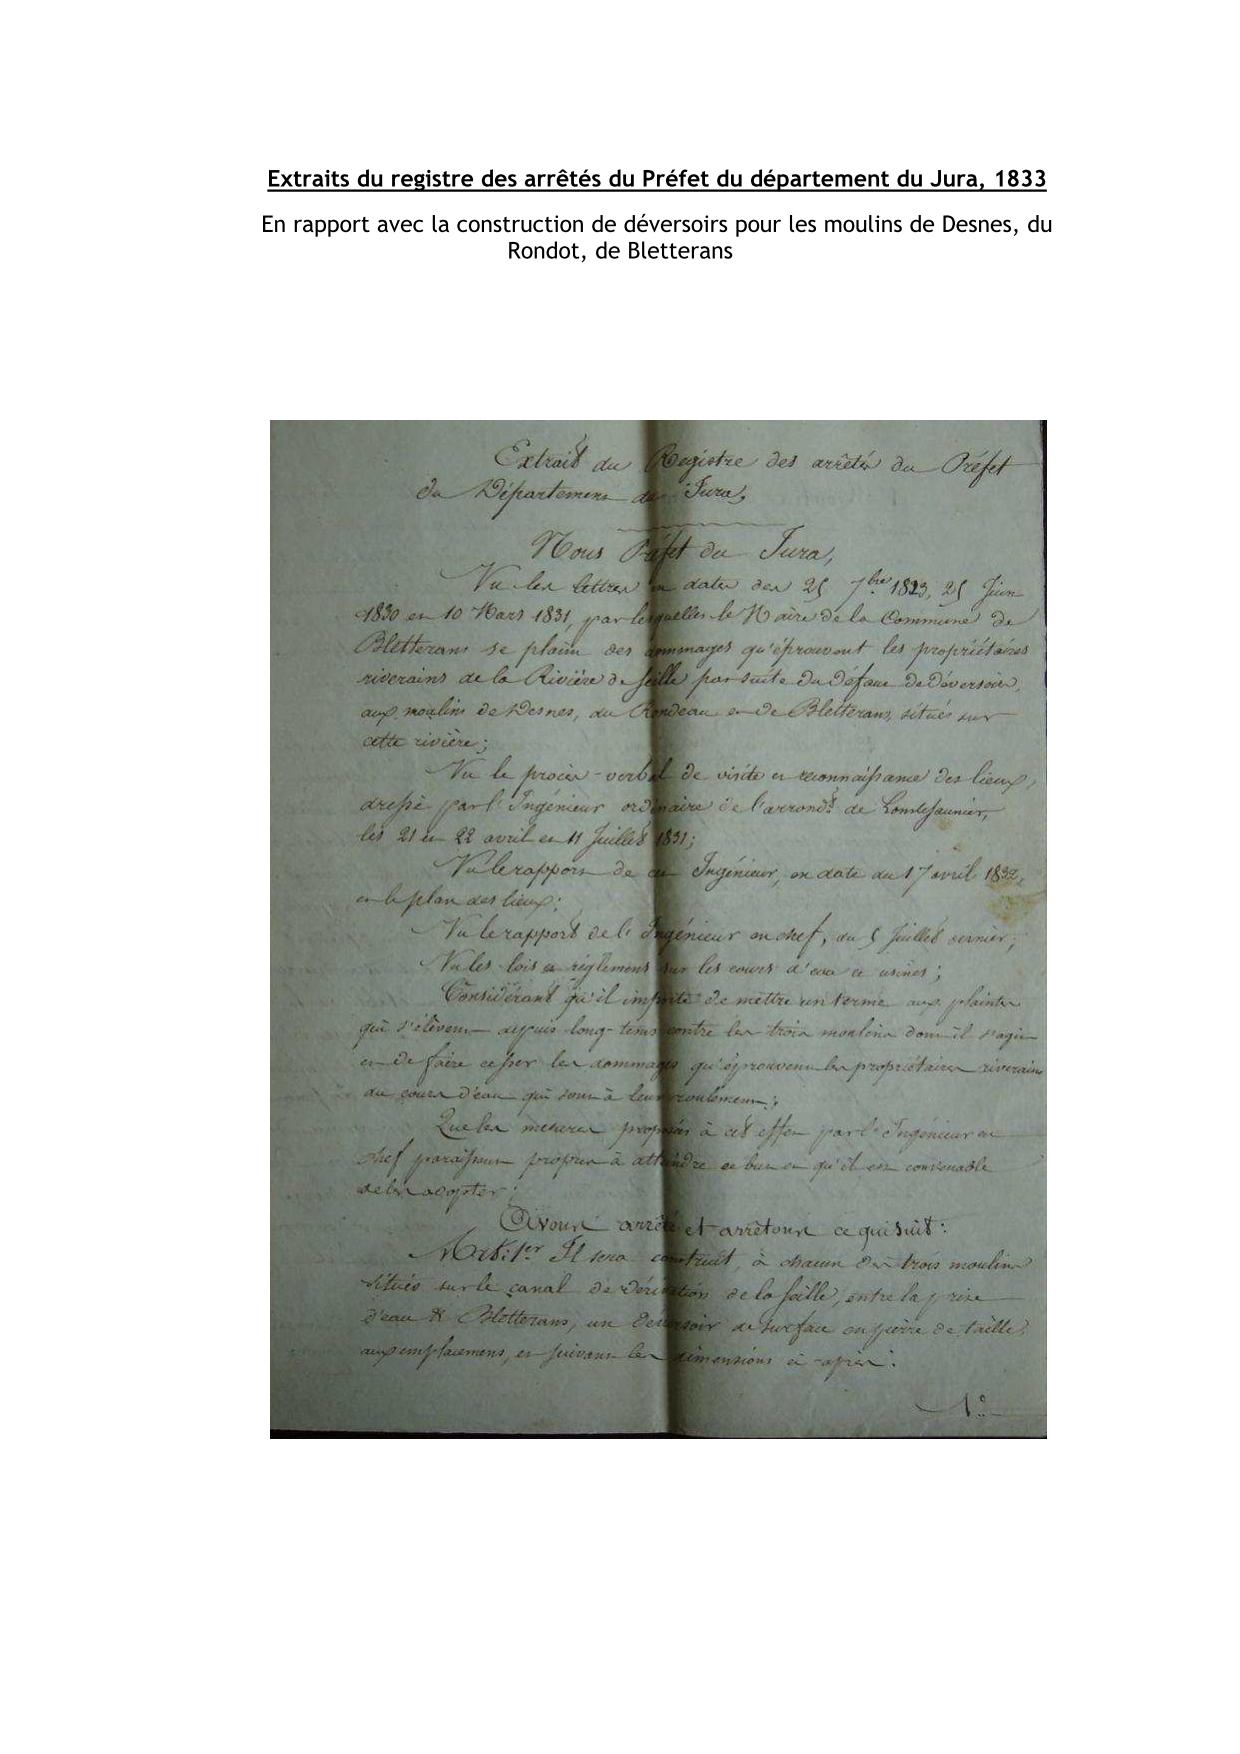 Extraits du registre des arrêtés du Préfet du département du Jura, 1833
En rapport avec la construction de déversoirs pour les moulins de Desnes, du
Rondot, de Bletterans
Extrait du Registre des arrêtés du Préfet
du Département du Jura,
Nous Préfet du Jura,
Vu les lettres en date des 25 7bre 1823, 25 Juin
1830 et 10 Mars 1831, par lesquelles le Maire de la Commune de
Bletterans se plaint des dommages qu'éprouvent les propriétaires
riverains de la Rivière de Seille par suite du défaut de déversoir,
aux moulins de Desnes, du Rondeau et de Bletterans, situés sur
cette rivière;
Vu le procès-verbal de visite et reconnaissance des lieux,
dressé par l'Ingénieur ordinaire de l'arrondt de Lonslesaunier,
les 21 et 22 avril et 11 Juillet 1831;
Vu le rapport de cet Ingénieur, en date du 17 avril 1832,
et le plan des lieux;
Vu le rapport de l'Ingénieur en chef, du 5 Juillet dernier;
Vu les lois et règlemens sur les cours d'eau et usines;
Considérant qu'il importe de mettre un terme aux plaintes
qui s'élèvent depuis long-tems contre les trois moulins dont il s'agit
et de faire cesser les dommages qu'éprouvent les propriétaires riverains
du cours d'eau qui sont à leur roulement;
Que les mesures proposées à cet effet par l'Ingénieur en
chef paraissent propres à atteindre ce but et qu'il est convenable
de les adopter;
Avons arrêté et arrêtons ce qui suit:
Art. 1er Il sera construit, à chacun des trois moulins
situés sur le canal de dérivation de la Seille, entre la prise
d'eau & Bletterans, un déversoir de surface en pierre de taille,
aux emplacemens, et suivant les dimensions ci-après:
1°